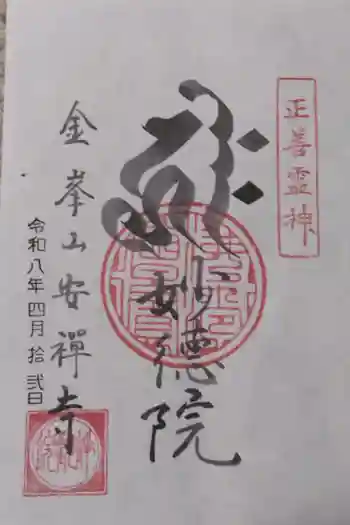 正善霊神
妙德院
金峯山安禪寺
令和八年四月拾弐日